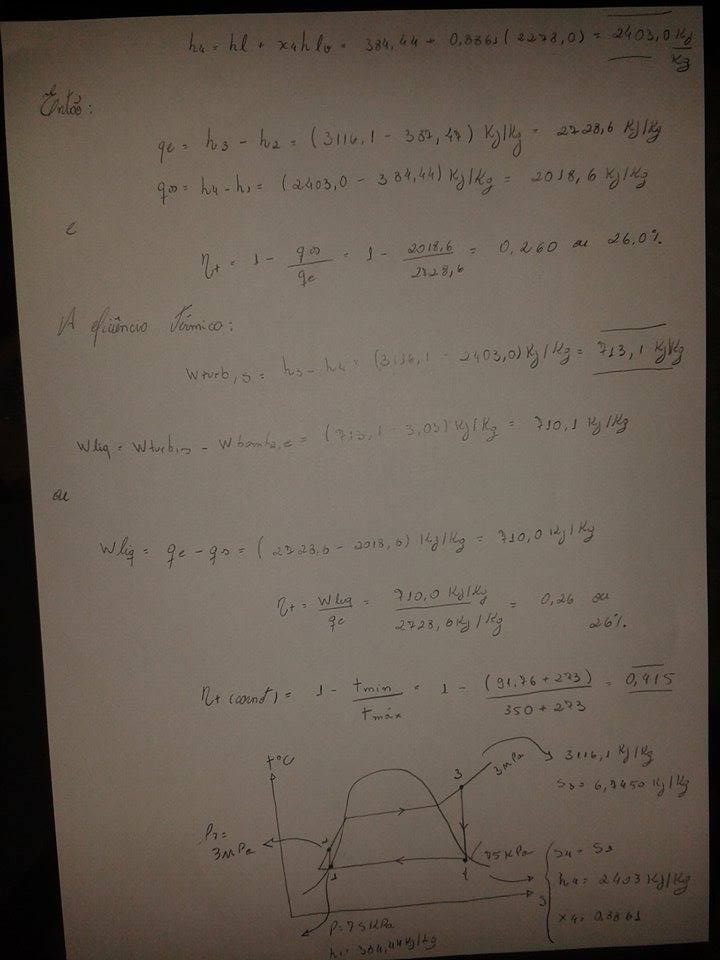 h4 = hl + x4 hlv = 384,44 + 0,8861 (2278,0) = 2403,0 Kj/Kg
Então:
qe = h3 - h2 = (3116,1 - 387,47) Kj/Kg = 2728,6 Kj/Kg
qs = h4 - h1 = (2403,0 - 384,44) Kj/Kg = 2018,6 Kj/Kg
e
ηt = 1 - qs/qe = 1 - 2018,6/2728,6 = 0,260 ou 26,0%.
A eficiência Térmica:
Wturb,s = h3 - h4 = (3116,1 - 2403,0) Kj/Kg = 713,1 Kj/Kg
Wliq = Wturb,s - Wbomba,e = (713,1 - 3,03) Kj/Kg = 710,1 Kj/Kg
ou
Wliq = qe - qs = (2728,6 - 2018,6) Kj/Kg = 710,0 Kj/Kg
ηt = Wliq/qe = 710,0 Kj/Kg / 2728,6 Kj/Kg = 0,26 ou
26%.
ηt (carnot) = 1 - tmin/tmáx = 1 - (91,76 + 273)/350 + 273 = 0,415
t°C
3
3MPa
3116,1 Kj/Kg
s3 = 6,7450 Kj/Kg
P2 =
3MPa
2
1
4
75KPa
s4 = s3
h4 = 2403 Kj/Kg
x4 = 0,8861
s
P = 75KPa
h1 = 384,44Kj/Kg